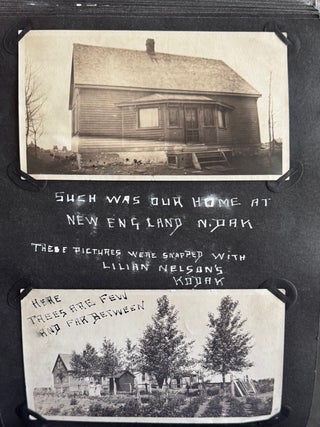 SUCH WAS OUR HOME AT
NEW ENGLAND N.DAK
THESE PICTURES WERE SNAPPED WITH
LILIAN NELSON'S
KODAK
HERE
TREES ARE FEW
AND FAR BETWEEN